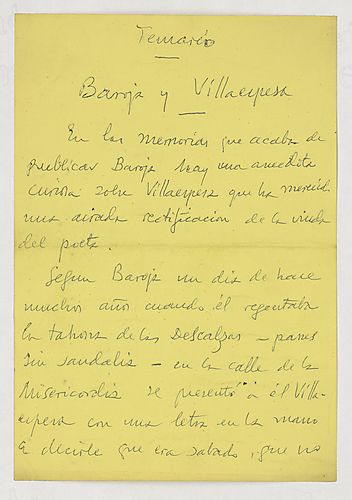 Temario
Baroja y Villaespesa
En las memorias que acaba de
publicar Baroja hay una anecdota
curiosa sobre Villaespesa que ha merecido
una airada rectificacion de la viuda
del poeta.
Segun Baroja un dia de hace
muchos años cuando él regentaba
la tahona de las Descalzas – panes
sin sandalia – en la calle de la
Misericordia se presentó a él Villa-
espesa con una letra en la mano
a decirle que era sabado, que no